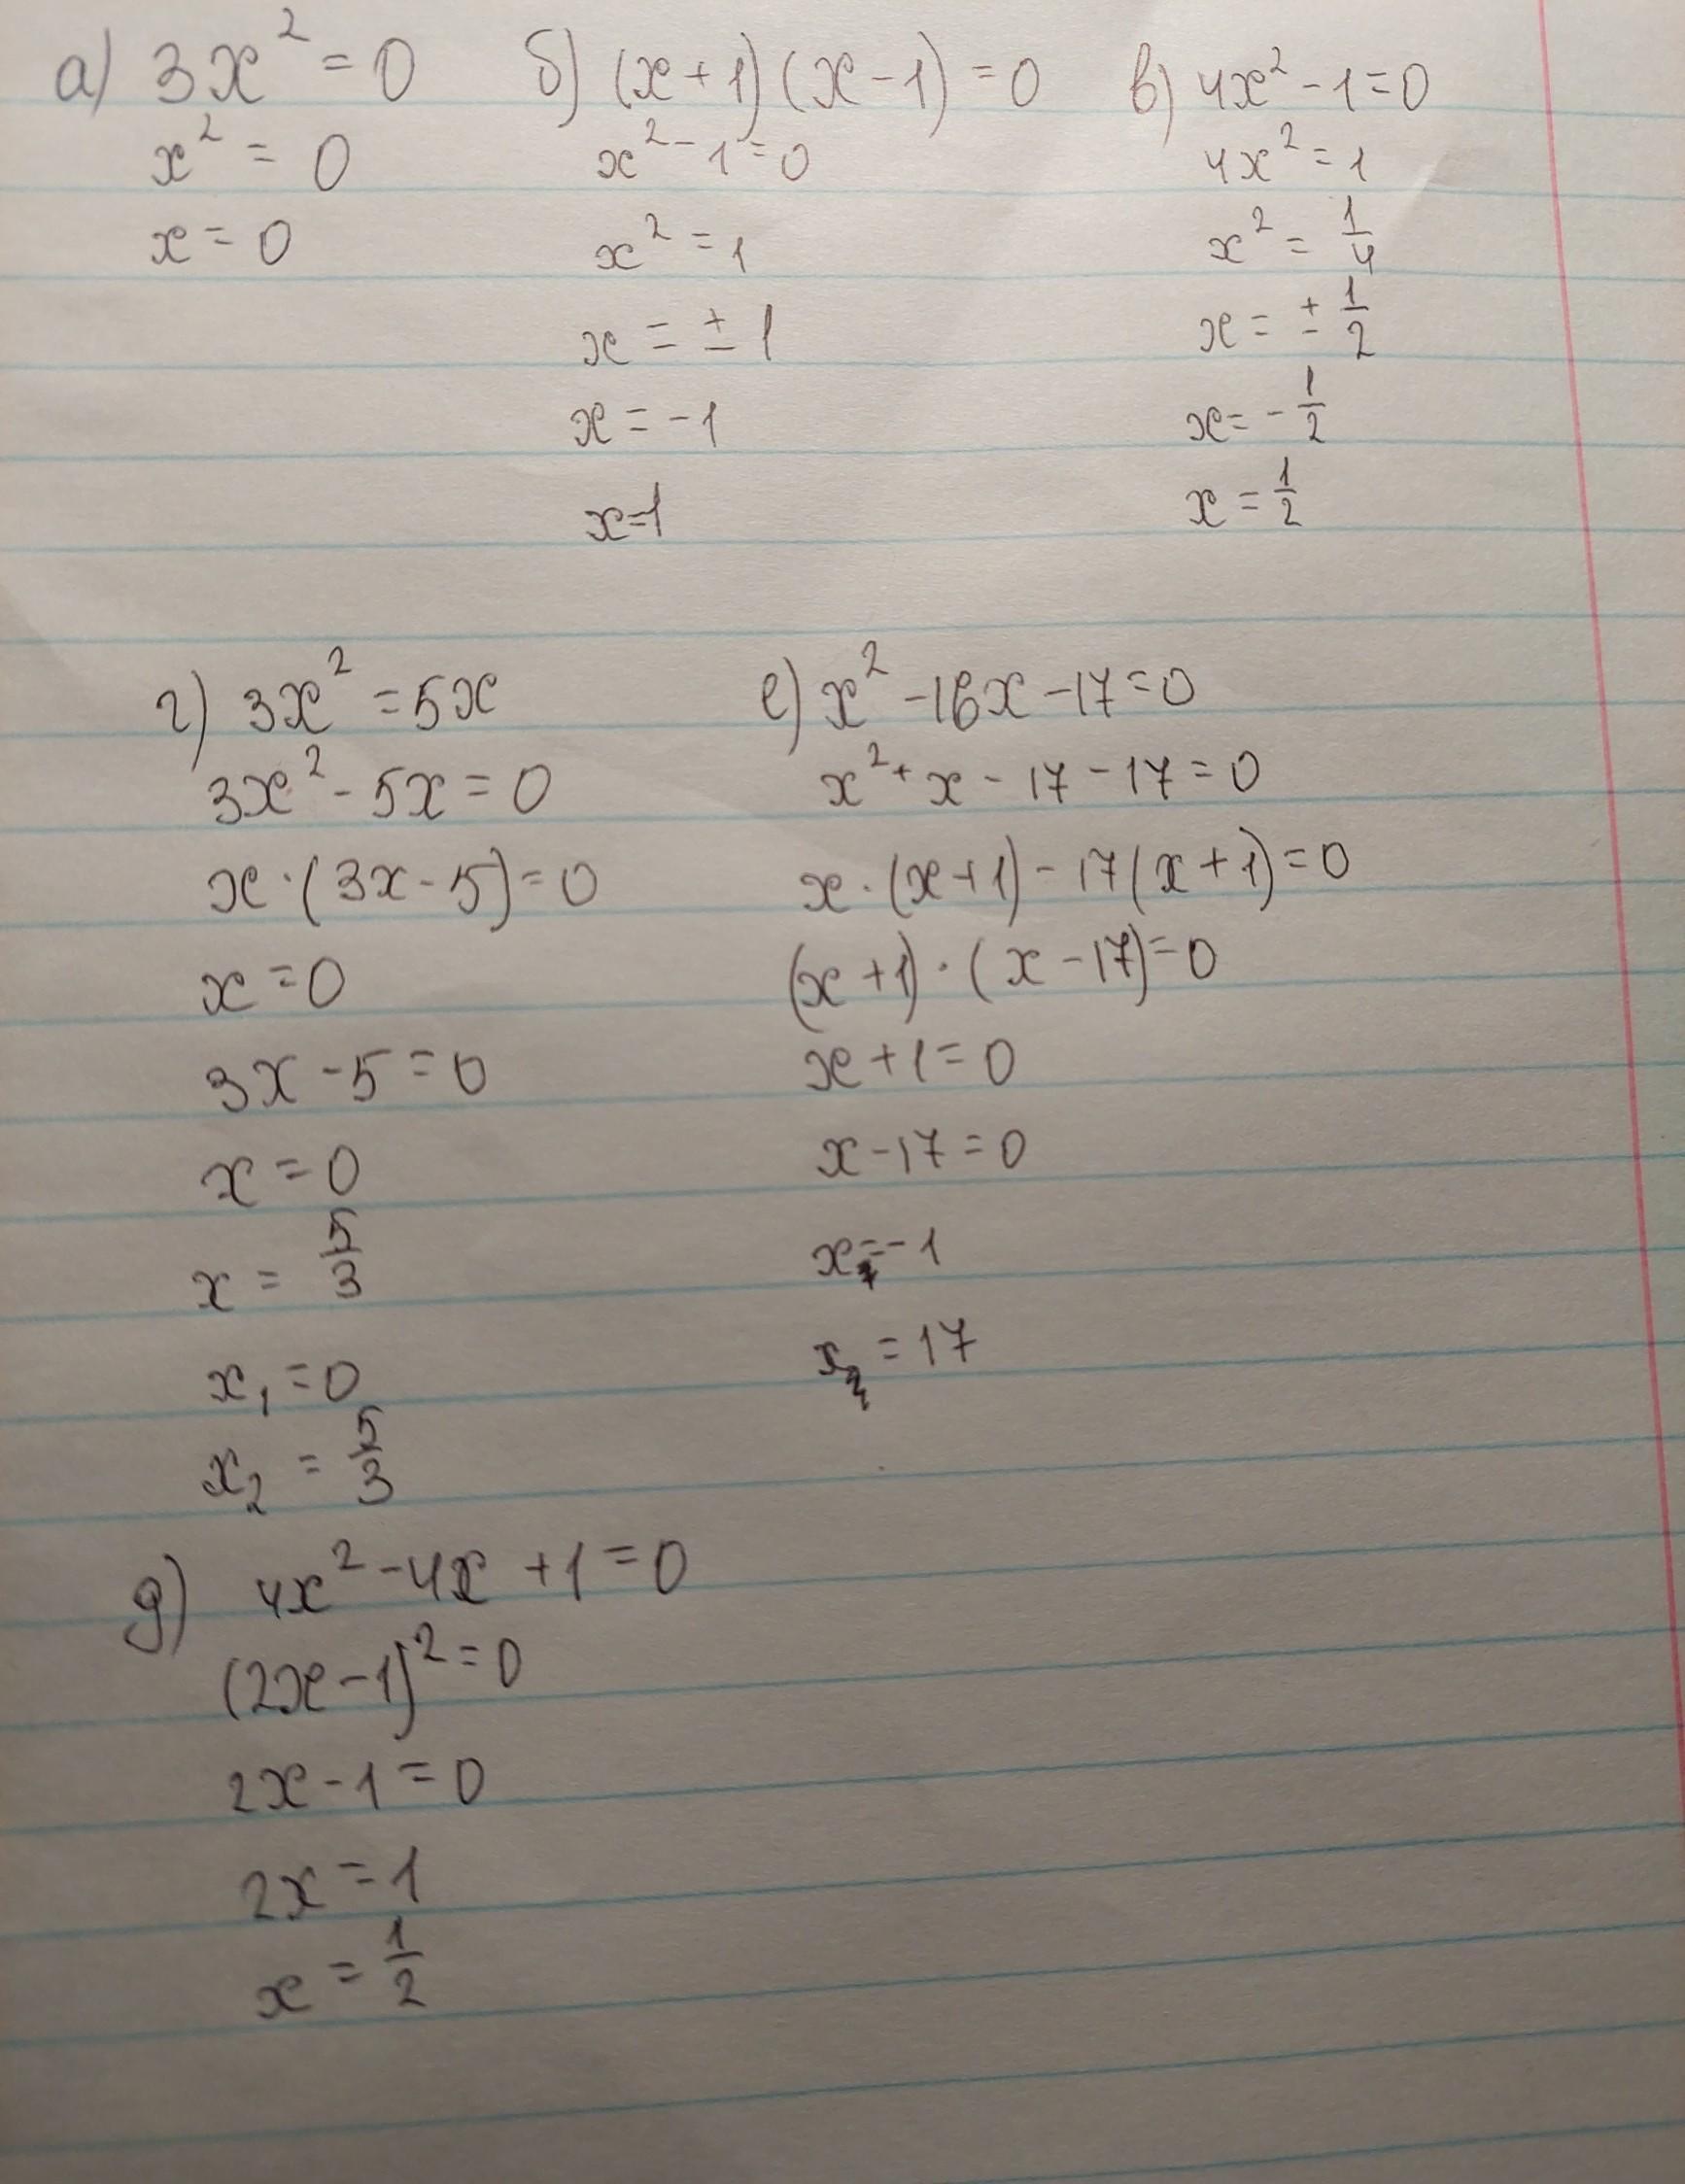 а) 3x² = 0
x² = 0
x = 0
б) (x+1)(x-1) = 0
x² - 1 = 0
x² = 1
x = ± 1
x = -1
x=1
в) 4x² - 1 = 0
4x² = 1
x² = 1/4
x = ± 1/2
x = - 1/2
x = 1/2
г) 3x² = 5x
3x² - 5x = 0
x · (3x - 5) = 0
x = 0
3x - 5 = 0
x = 0
x = 5/3
x₁ = 0
x₂ = 5/3
е) x² - 16x - 17 = 0
x² + x - 17 - 17 = 0
x · (x+1) - 17(x+1) = 0
(x+1) · (x-17) = 0
x+1 = 0
x-17 = 0
x₁ = -1
x₂ = 17
д) 4x² - 4x + 1 = 0
(2x-1)² = 0
2x - 1 = 0
2x = 1
x = 1/2